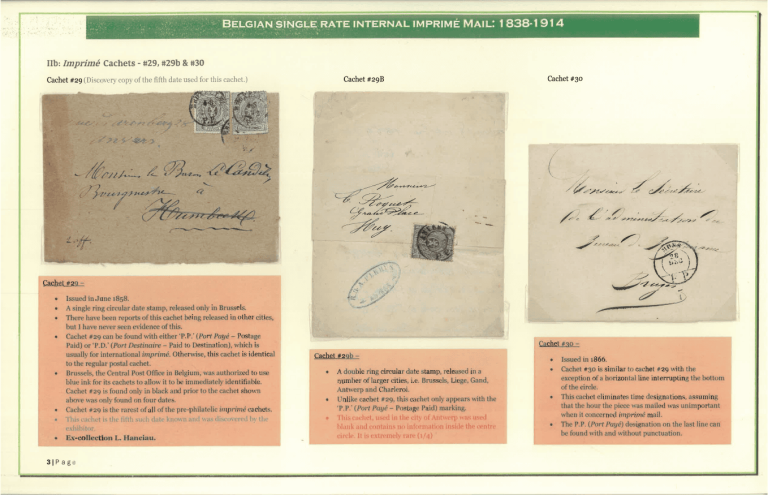 BELGIAN SINGLE RATE INTERNAL IMPRIMÉ MAIL: 1838-1914
IIb: Imprimé Cachets - #29, #29b & #30
Cachet #29 (Discovery copy of the fifth date used for this cachet.)
Cachet #29B
Cachet #30
Anvers.
Monsieur le Baron Le Candèle
Bourgmestre à
Humbeek
Monsieur
Hoquet
Grande Place
Huy.
Monsieur le Secrétaire
de l'administration du
Bruges
MONS
26
DEC
P P
Cachet #29 –
• Issued in June 1858.
• A single ring circular date stamp, released only in Brussels.
• There have been reports of this cachet being released in other cities,
but I have never seen evidence of this.
• Cachet #29 can be found with either 'P.P.' (Port Payé – Postage
Paid) or 'P.D.' (Port Destinaire – Paid to Destination), which is
usually for international imprimé. Otherwise, this cachet is identical
to the regular postal cachet.
• Brussels, the Central Post Office in Belgium, was authorized to use
blue ink for its cachets to allow it to be immediately identifiable.
Cachet #29 is found only in black and prior to the cachet shown
above was only found on four dates.
• Cachet #29 is the rarest of all of the pre-philatelic imprimé cachets.
• This cachet is the fifth such date known and was discovered by the
exhibitor.
• Ex-collection L. Hanciau.
Cachet #29b –
• A double ring circular date stamp, released in a
number of larger cities, i.e. Brussels, Liege, Gand,
Antwerp and Charleroi.
• Unlike cachet #29, this cachet only appears with the
'P.P.' (Port Payé – Postage Paid) marking.
• This cachet, used in the city of Antwerp was used
blank and contains no information inside the centre
circle. It is extremely rare (1/4)
Cachet #30 –
• Issued in 1866.
• Cachet #30 is similar to cachet #29 with the
exception of a horizontal line interrupting the bottom
of the circle.
• This cachet eliminates time designations, assuming
that the hour the piece was mailed was unimportant
when it concerned imprimé mail.
• The P.P. (Port Payé) designation on the last line can
be found with and without punctuation.
3 | Page